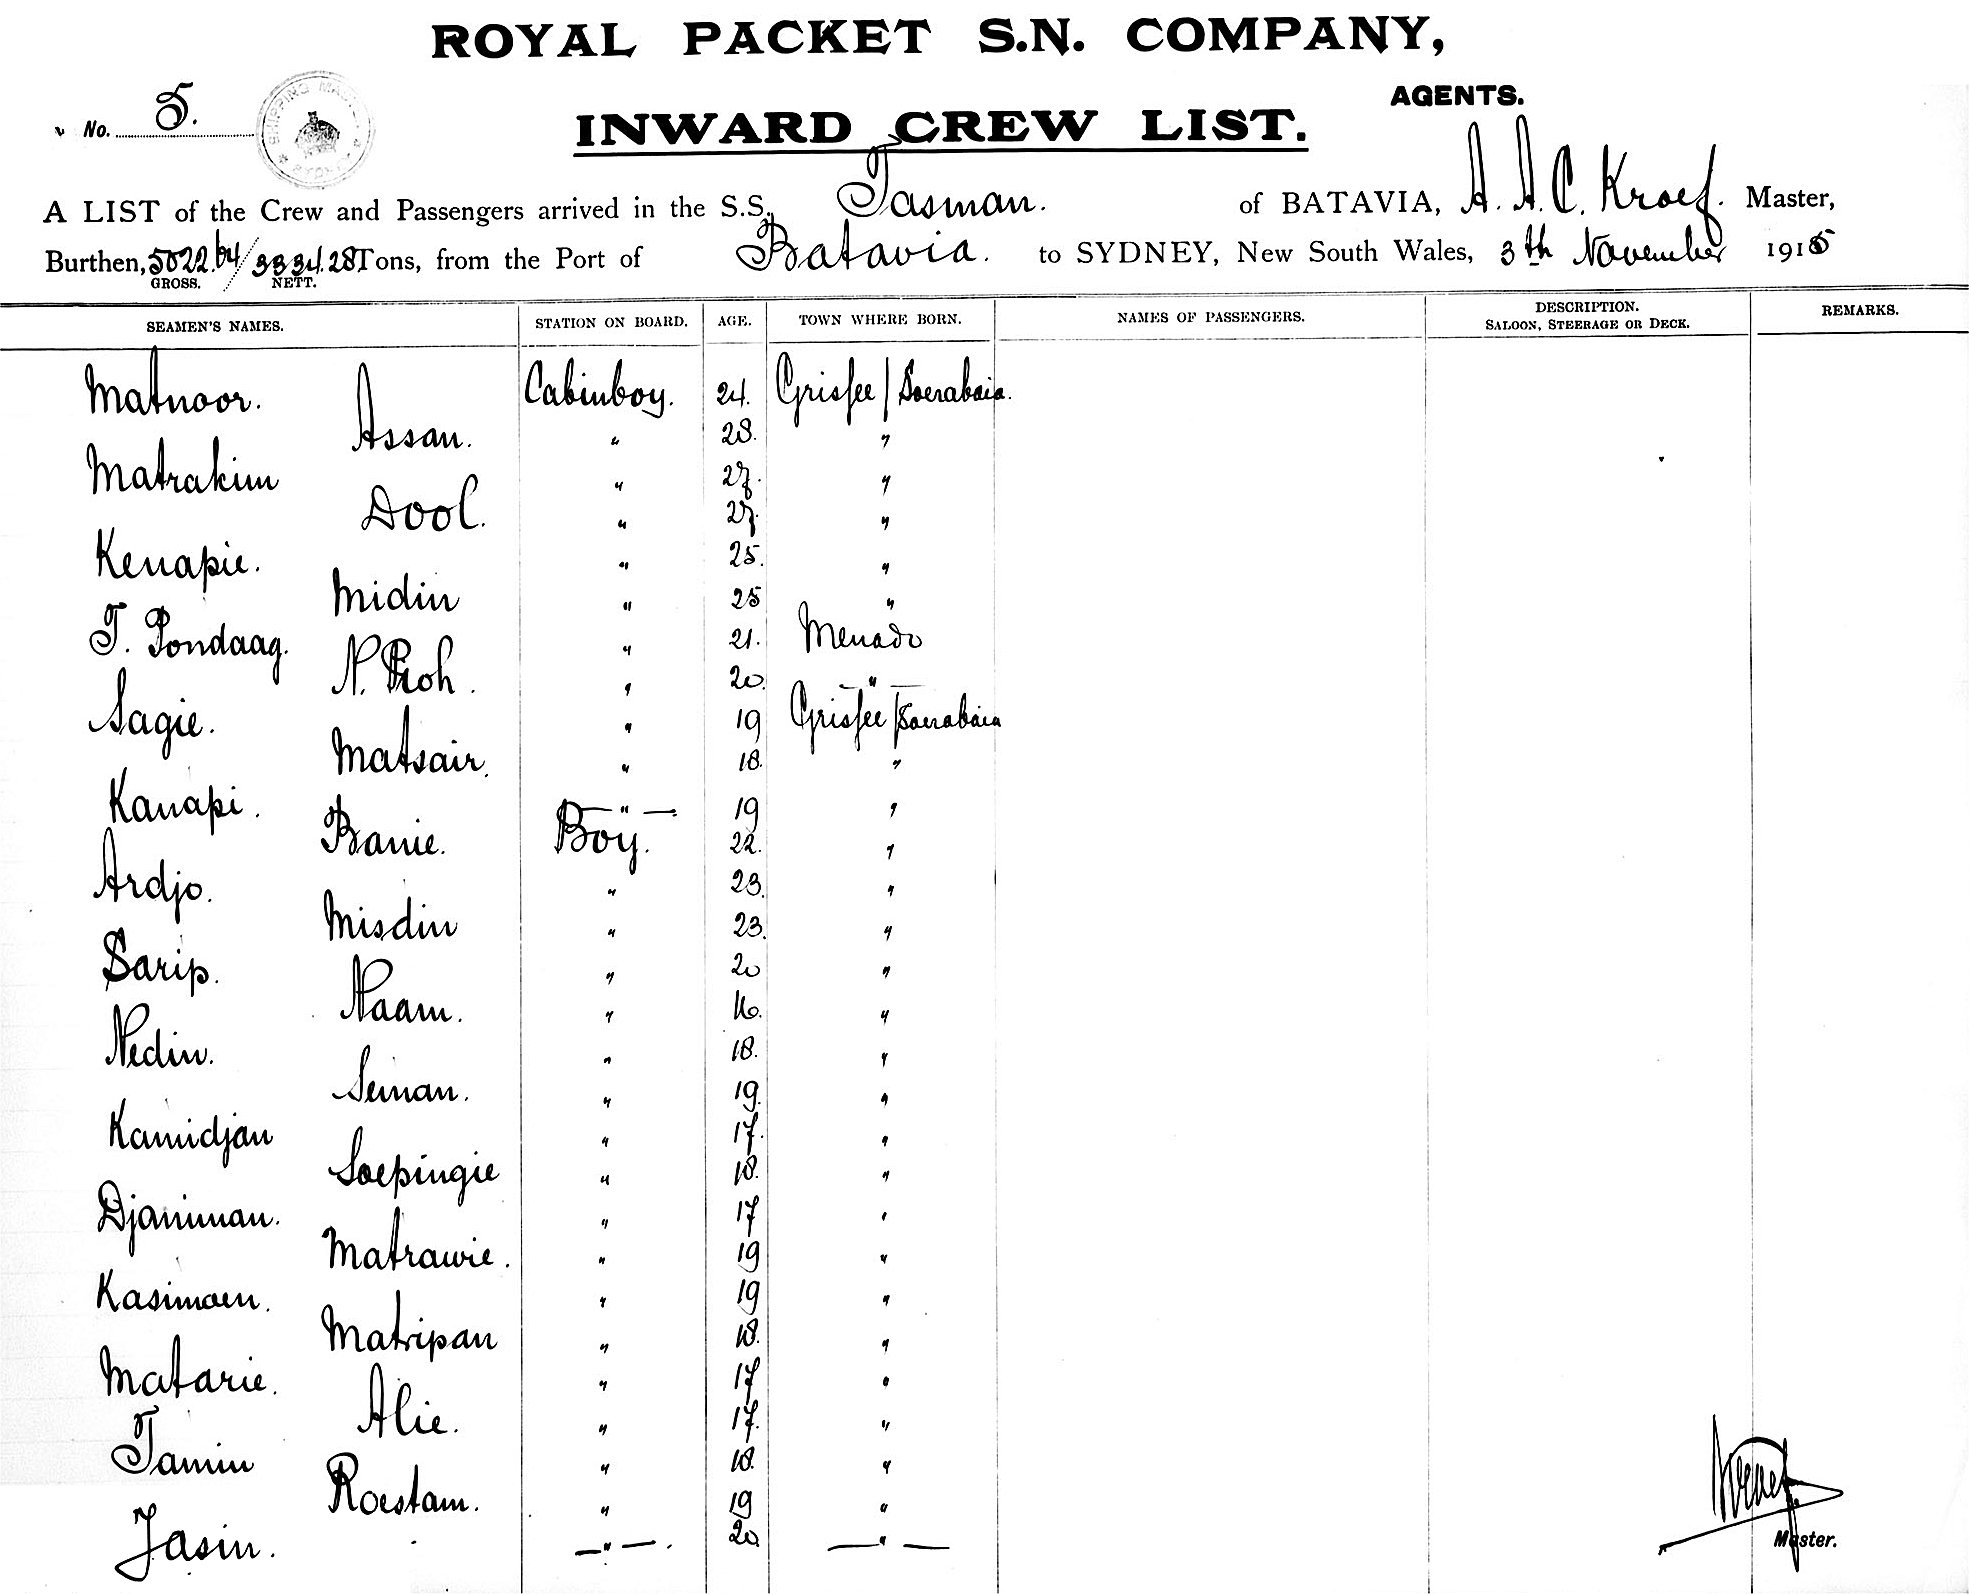 ROYAL PACKET S.N. COMPANY,
AGENTS.
No. 5.
INWARD CREW LIST.
A LIST of the Crew and Passengers arrived in the S.S. Tasman. of BATAVIA, A. A. C. Kroef. Master,
Burthen, 5022.64 / 3334.28 Tons, from the Port of Batavia. to SYDNEY, New South Wales, 3th November 1915
GROSS. NETT.
SEAMEN'S NAMES. STATION ON BOARD. AGE. TOWN WHERE BORN. NAMES OF PASSENGERS. DESCRIPTION. SALOON, STEERAGE OR DECK. REMARKS.
Matnoor. Cabinboy. 24. Grissee / Soerabaia.
Assan. " 28. "
Matrakim " 27. "
Dool. " 27. "
Kenapie. " 25. "
Midin " 25 "
T. Pondaag. " 21. Menado
N. Proh. " 20. "
Sagie. " 19 Grissee / Soerabaia
Matsair. " 18. "
Kanapi. " 19 "
Banie. Boy. 22. "
Ardjo. " 23. "
Misdin " 23. "
Sarip. " 20 "
Naam. " 16. "
Nedin. " 18. "
Seman. " 19. "
Kamidjan " 17. "
Soepingie " 18. "
Djaniman. " 17 "
Matrawie. " 19 "
Kasimoen. " 19 "
Matripan " 18. "
Matarie. " 17 "
Alie. " 17. "
Tamin " 18. "
Roestam. " 19 "
Jasin. " 20 "
Master.